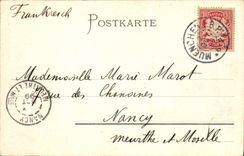 Frankreich
POSTKARTE
MUENCHEN
Mademoiselle Marie Marot
rue des Chanoines
Nancy
Meurthe et Moselle
NANCY